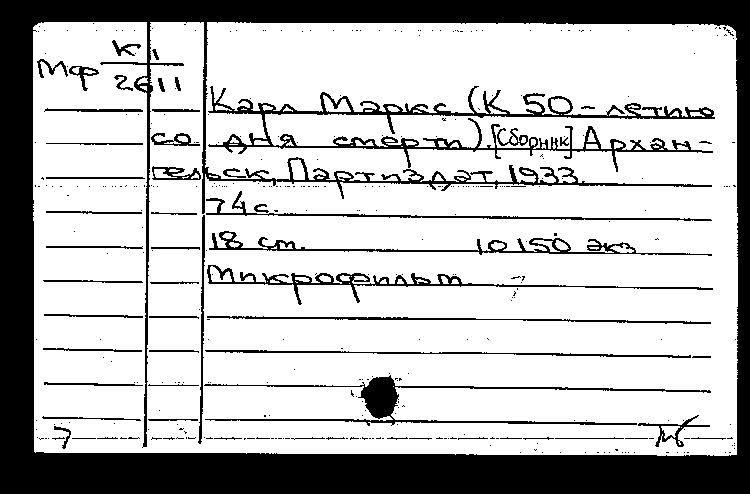 Мф К 1
2611
Карл Маркс (К 50-летию
со дня смерти). [Сборник] Архан-
гельск, Партиздат, 1933.
74 с.
18 см. 10150 экз
Микрофильм.
7